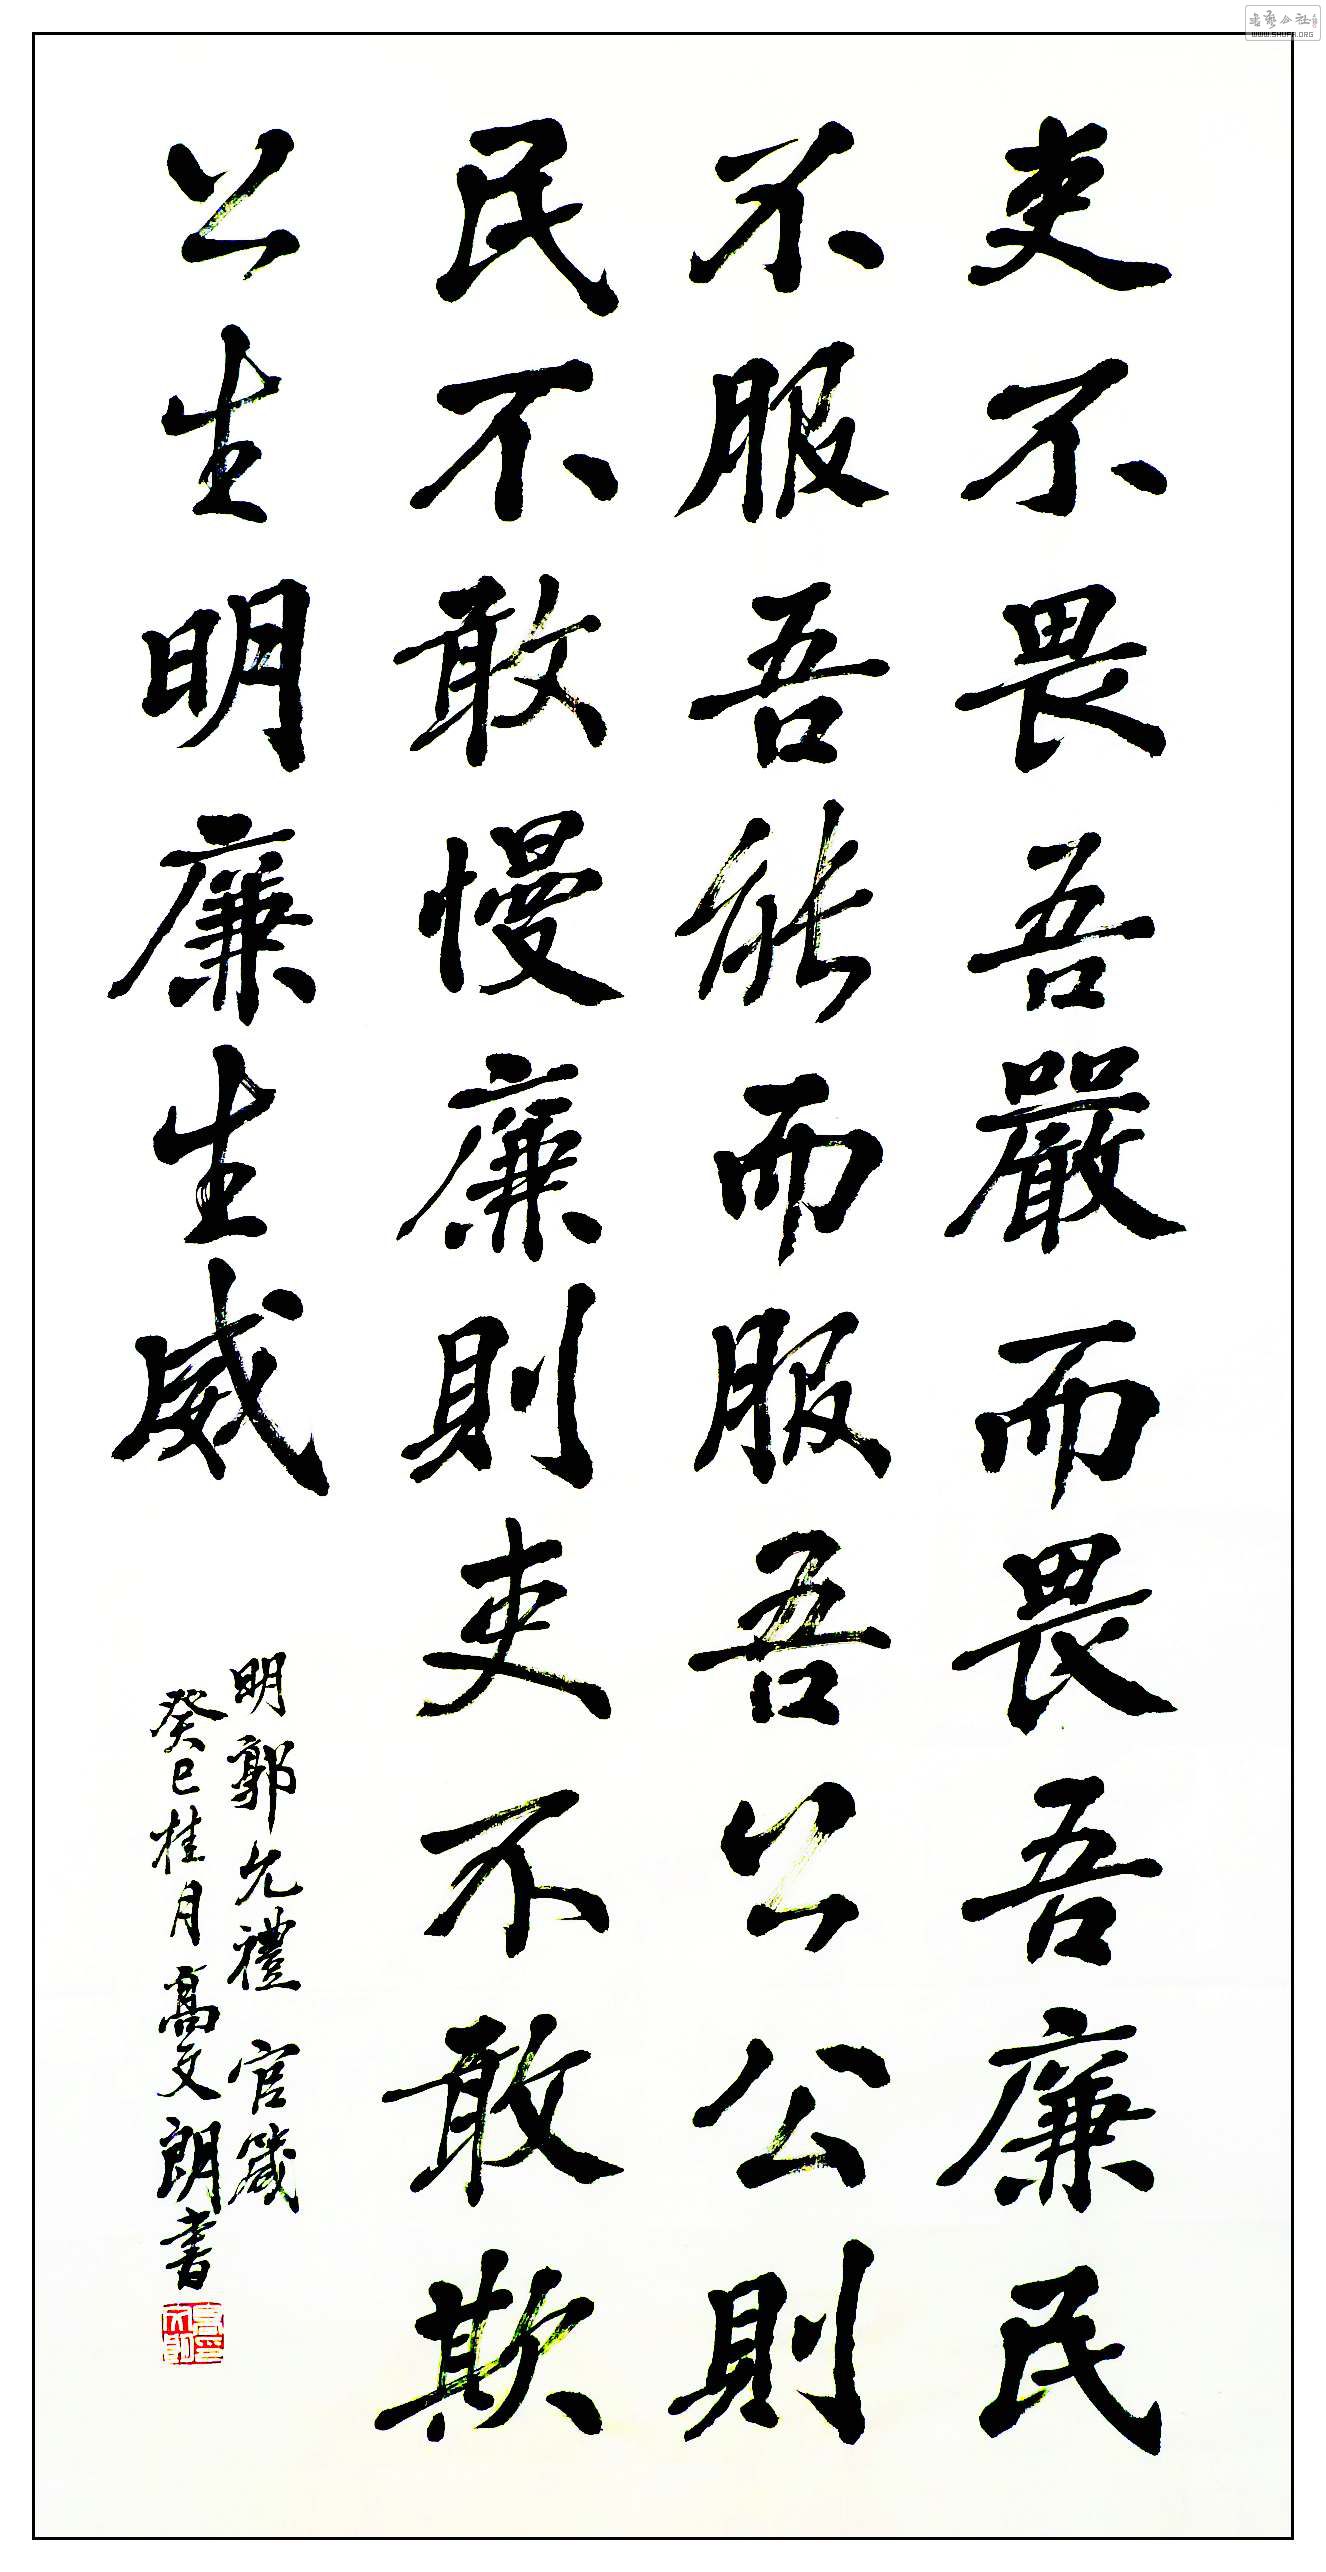 吏不畏吾嚴而畏吾廉民
不服吾能而服吾公公則
民不敢慢廉則吏不敢欺
公生明廉生威
明郭允禮 官箴
癸巳桂月高文朗書
書藝公社
WWW.SHUFA.ORG